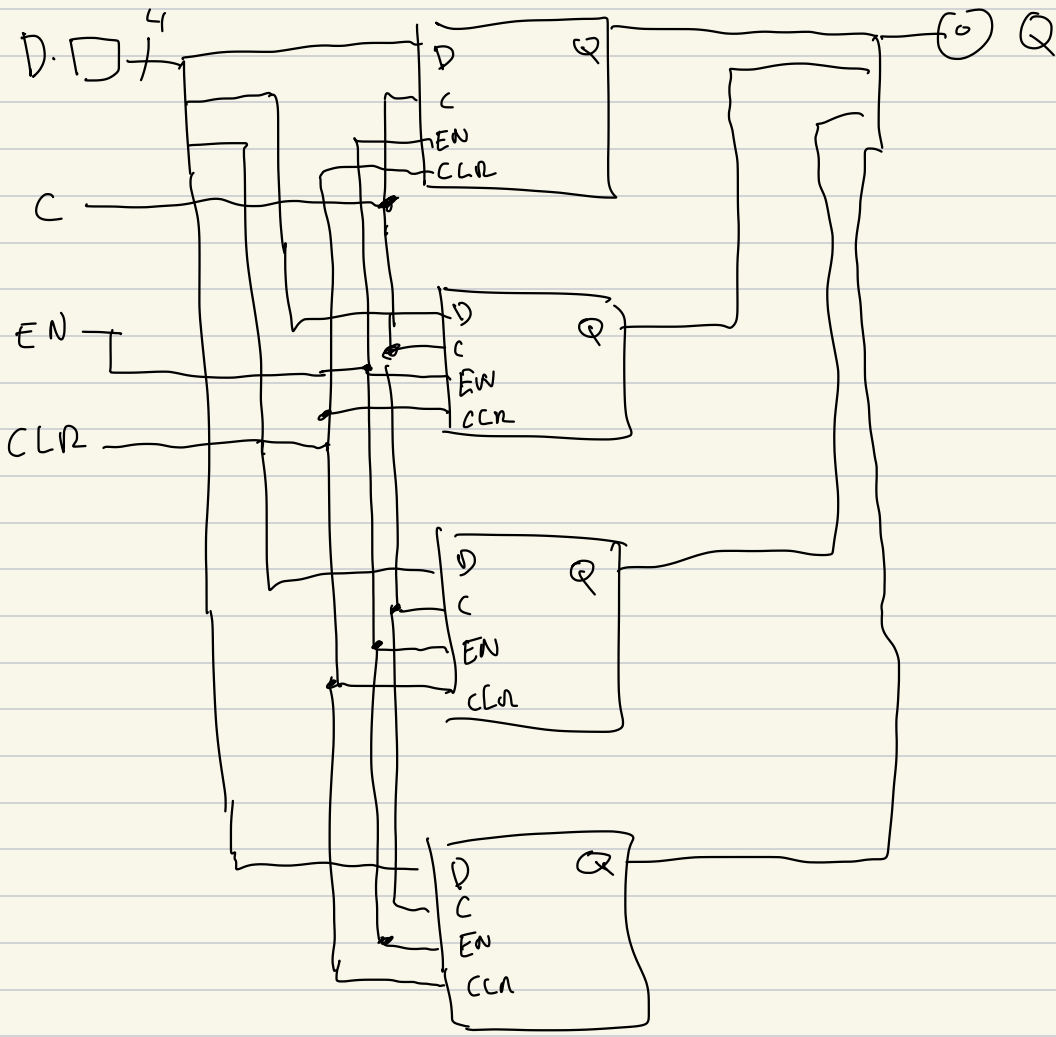 4
D.
Q
D
Q
C
EN
CLR
C
D
Q
C
EN
CLR
EN
CLR
D
Q
C
EN
CLR
D
Q
C
EN
CLR